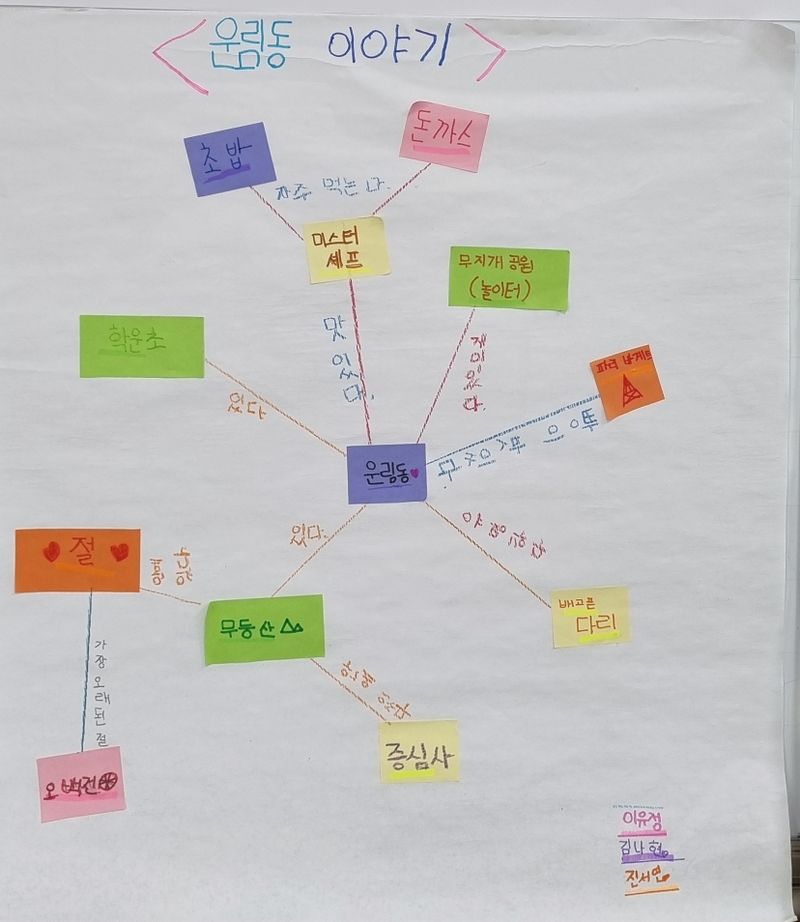 <운림동 이야기>
초밥
돈까스
자주 먹는다.
미스터
셰프
무지개 공원
(놀이터)
맛있다.
재미있다.
학운초
있다
파리 바게트
빵이 맛있다.
운림동
있다.
절
무등산
배고픈
다리
가장 오래된 절
증심사
오백전
이유정
김나현
진서연